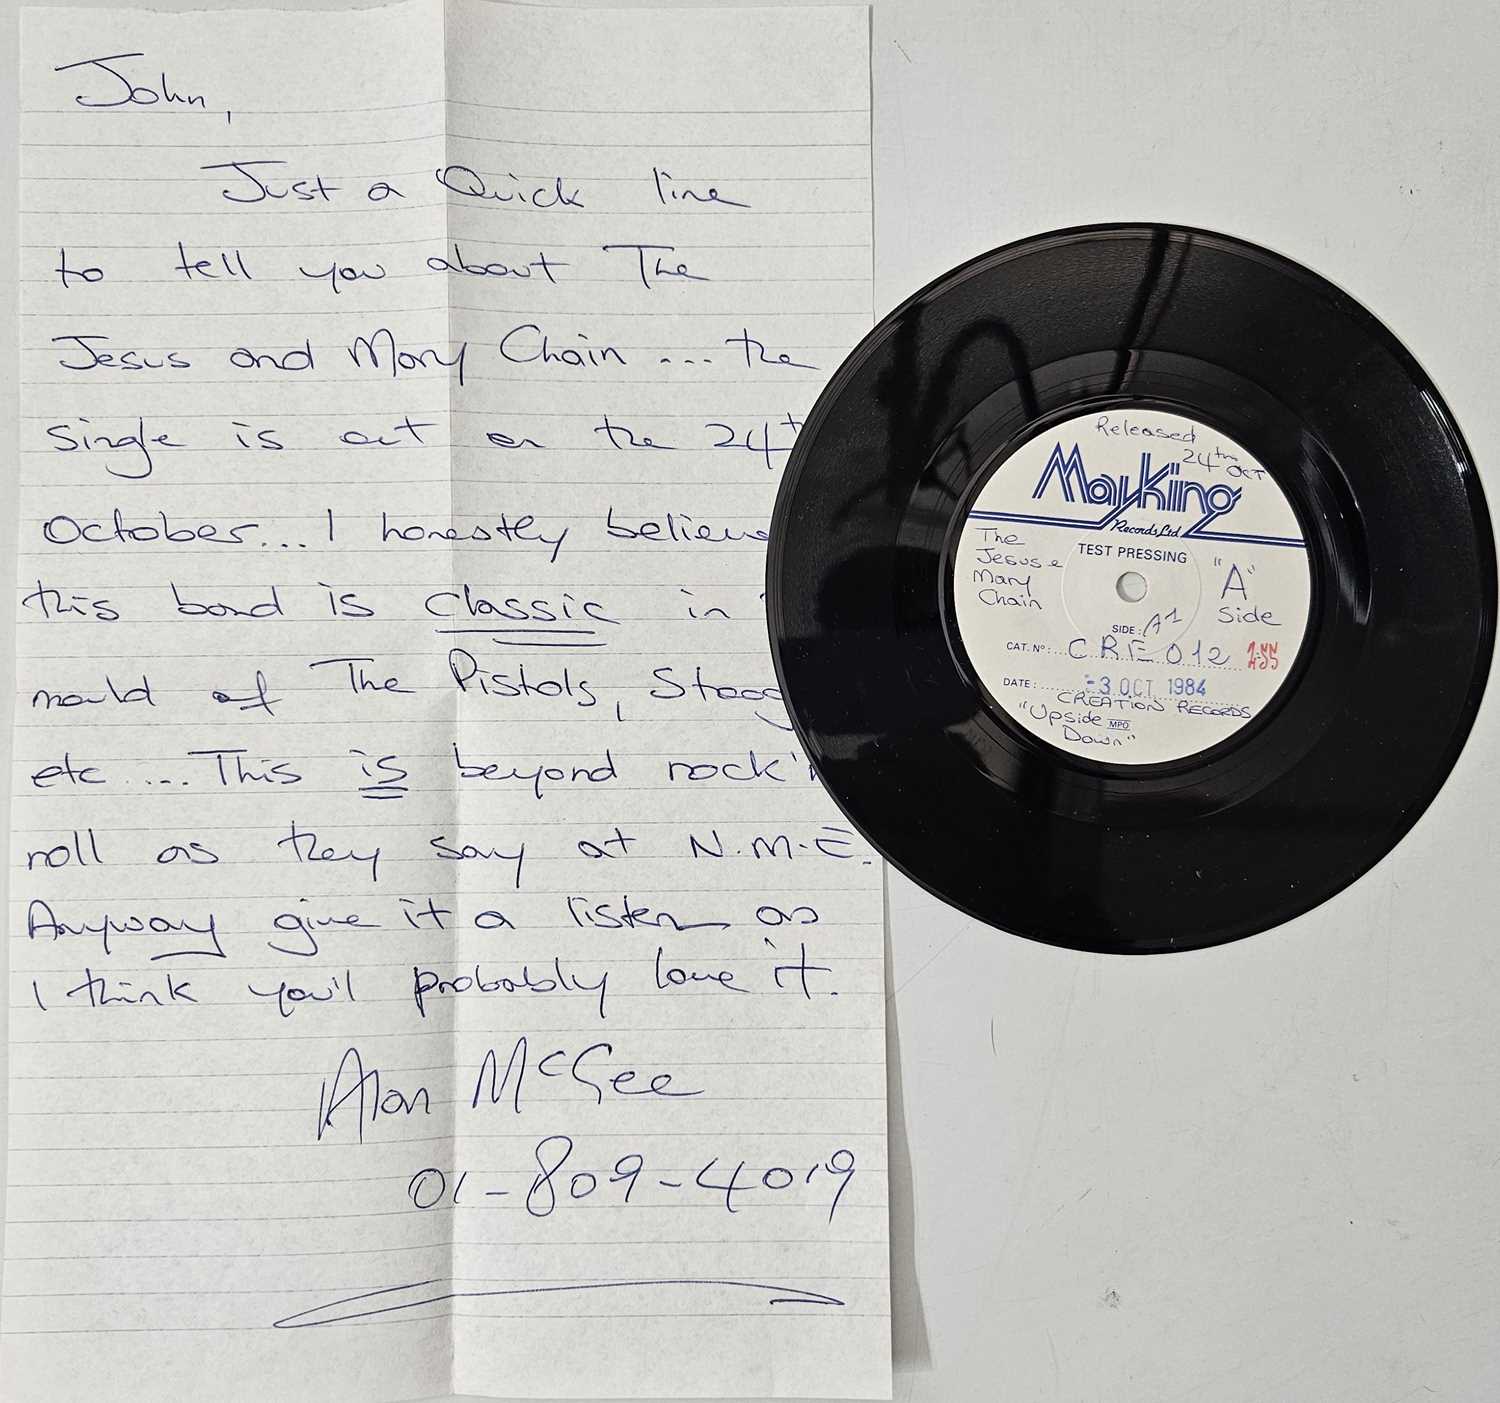 John,
Just a Quick line
to tell you about The
Jesus and Mary Chain ... the
single is out on the 24th
October... I honestly believe
this band is classic in
mould of The Pistols, Stoog
etc .... This is beyond rock'n
roll as they say at N.M.E.
Anyway give it a listen as
I think you'll probably love it.
Alan McGee
01-809-4019
Released
24th OCT
MayKing
Records Ltd
TEST PRESSING
The
Jesus &
Mary
Chain
"A"
Side
SIDE: A1
CAT. Nº: CRE 012 1.55
DATE: -3 OCT 1984
CREATION RECORDS
"Upside MPO
Down"